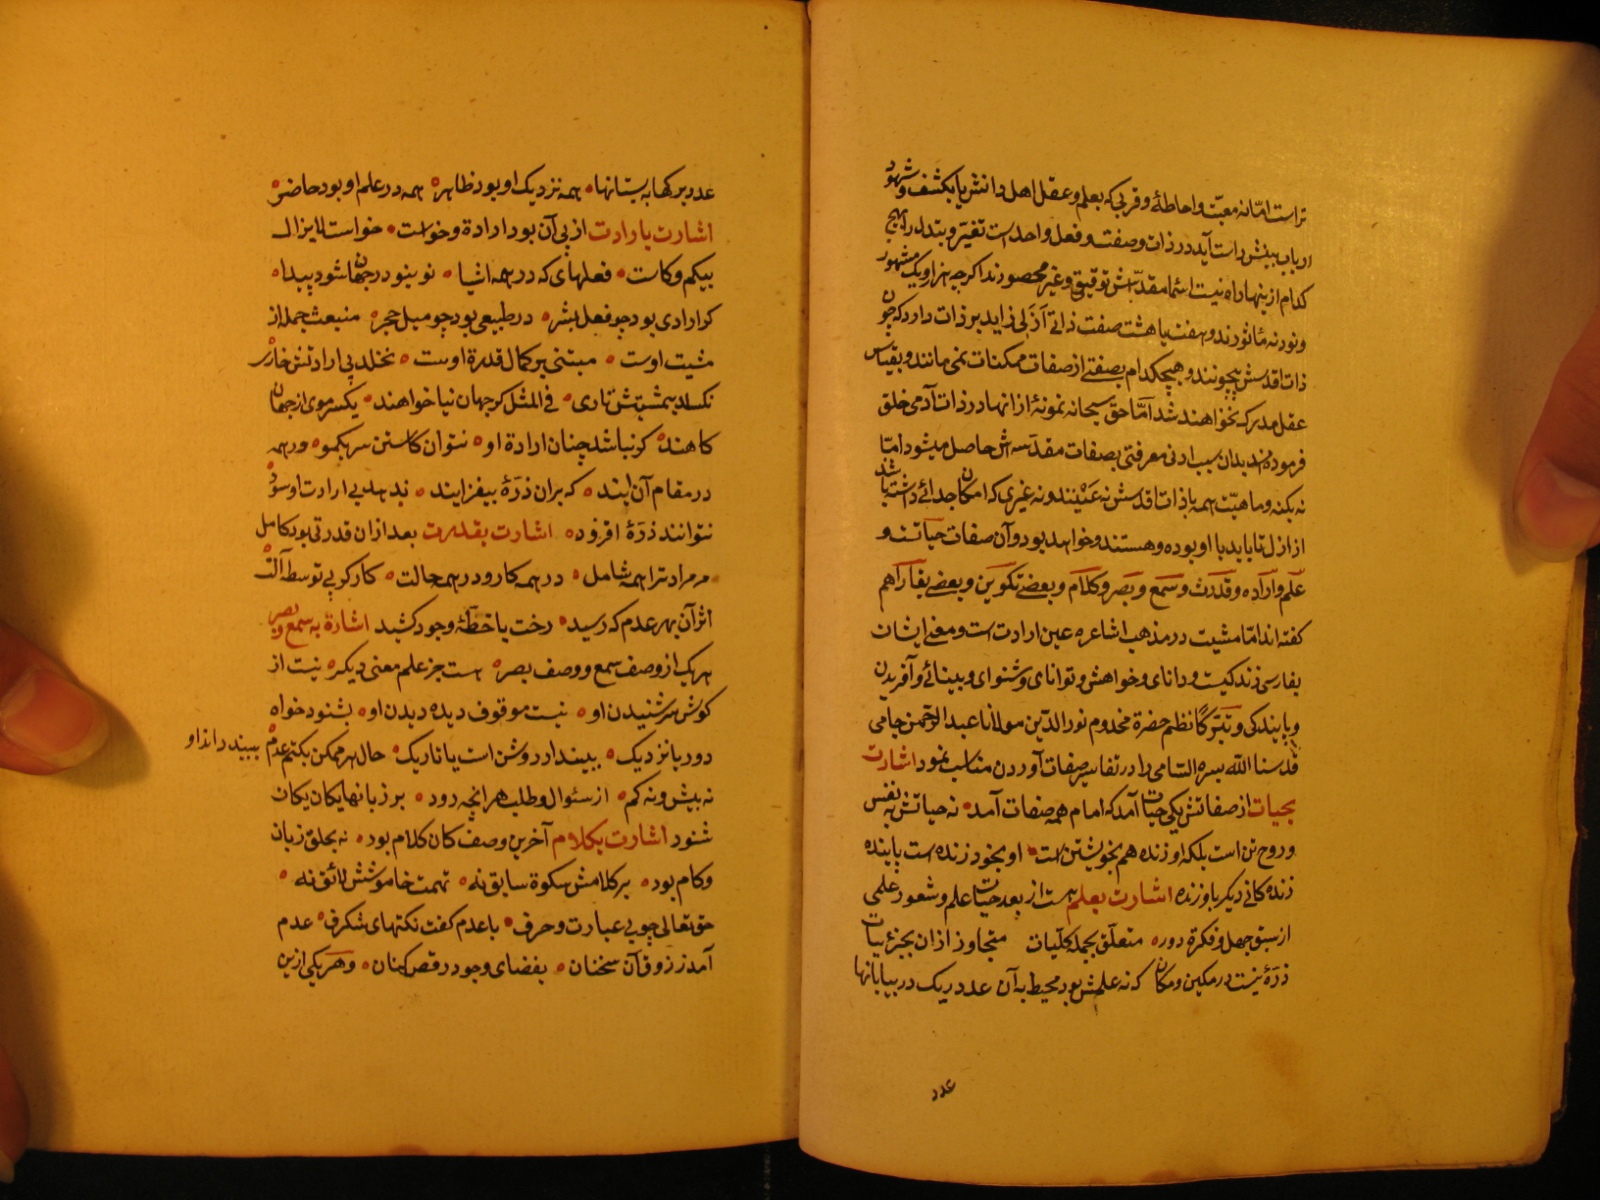 تراست امّا نه معیّت و احاطهٔ و قربی که بعلم و عقل اهل دانش یا بکشف و شهود
ارباب بینش راست آید در ذات و صفت و فعل واحد است تغیّر و تبدل را بهیچ
کدام از ینها راه نیست اسما مقدّسش توقیقی و غیر محصورند اکرچه هزار و یک مشهور
و نود نه مأثورند و هفت یا هشت صفت ذاتی ازلی زاید بر ذات دارد که چون
ذات اقدسش بیچونند و هیچکدام بصفتی از صفات ممکنات نمی مانند و بقیاس
عقل مدرک نخواهند شد امّا حق سبحانه نمونهٔ از انها در ذات آدمی خلق
فرموده بدان سبب ادنی معرفتی بصفات مقدّسه‌اش حاصل میشود امّا
نه بکنه و ماهیّت همه با ذات قدسش نه عَیْنند و نه غیری که امکان جدائے داشته باشد
از ازل تا باید با او بوده و هستند و خواهد بود و آن صفات حیاتست و
علم و اراده و قدرت و سمع و بصر و کلام و بعضے تکوین و بعضے بقا را هم
کفته اند امّا مشیت در مذهب اشاعره عین ارادت است و معنے ایشان
بفارسی زندکیست و دانای و خواهش و توانای و شنوای و بینائے و آفریدن
و پایندکی و تبرّکًا نظم حضرة مخدوم نور الدّین مولانا عبد الرّحمن جامی
قدسنا الله بسره السّامی را در تفاسیر صفات آوردن مناسب نمود اشارت
بحیات از صفاتش یکی حیات آمد که امام همه صفات آمد نه حیاتش به نفس
و روح تن است بلکه او زنده هم بخویشتن است او بخود زنده است پاینده
زندکانی دیکر باو زنده اشارت بعلم هست از بعد حیات علم و شعور علمی
از سبق جهل و فکرة دور متعلّق بجمله کلّیات متجاوز از ان بجزئیات
ذرّهٔ نیست در مکین و مکان که نه علمش بود محیط به آن عدد ریک در بیابانها
عدد
عدد برکها به بستانها همه نزدیک او بود ظاهر همه در علم او بود حاضر
اشارت بارادت از پی آن بود ارادة و خواست خواست لایزال
بیکم و کاست فعلهای که در همه اشیا نو بنو در جهان شود پیدا
کر ارادی بود چو فعل بشر در طبیعی بود چو میل حجر منبعث جمله از
مشیت اوست مبتنی بر کمال قدرة اوست نخلد بی ارادتش خار
نکسلد بیمشیتش تاری فی المثل کر جهان نیا خواهند یکسر موی از جهان
کاهند کر نباشد چنان ارادة او نتوان کاستن سر یکمو ور همه
در مقام آن آیند که بران ذرّهٔ بیفزایند ندهد بی ارادت او سود
نتوانند ذرّهٔ افزود اشارت بقدرت بعد ازان قدرتی بود کامل
مر مرادتر همه شامل در همه کار و در همه حالت کار کر بی توسط آلت
اثر آن بهر عدم که رسید رخت با خطّهٔ وجود کشید اشارة به سمع و بصر
هر یک از وصف سمع و وصف بصر هست جز علم معنی دیکر نیست از
کوش هر شنیدن او نیست موقوف دیده دیدن او بشنود خواه
دور یا نزدیک بیند ار روشن است یا تاریک حال هر ممکن بکتم عدم بیند در اند او
نه بیش و نه کم از سئوال و طلب هر انچه رود بر زبانها یکان یکان
شنود اشارت بکلام آخرین وصف کان کلام بود نه بحلق زبان
و کام بود بر کلامش سکوة سابق نه تهمت خاموشش لائق نه
حق تعالی چو بی عبارت و حرف با عدم کفت نکتهای شکرف عدم
آمد ز ذوق آن سخنان بفضای وجود رقص کنان و هر یکی ازین